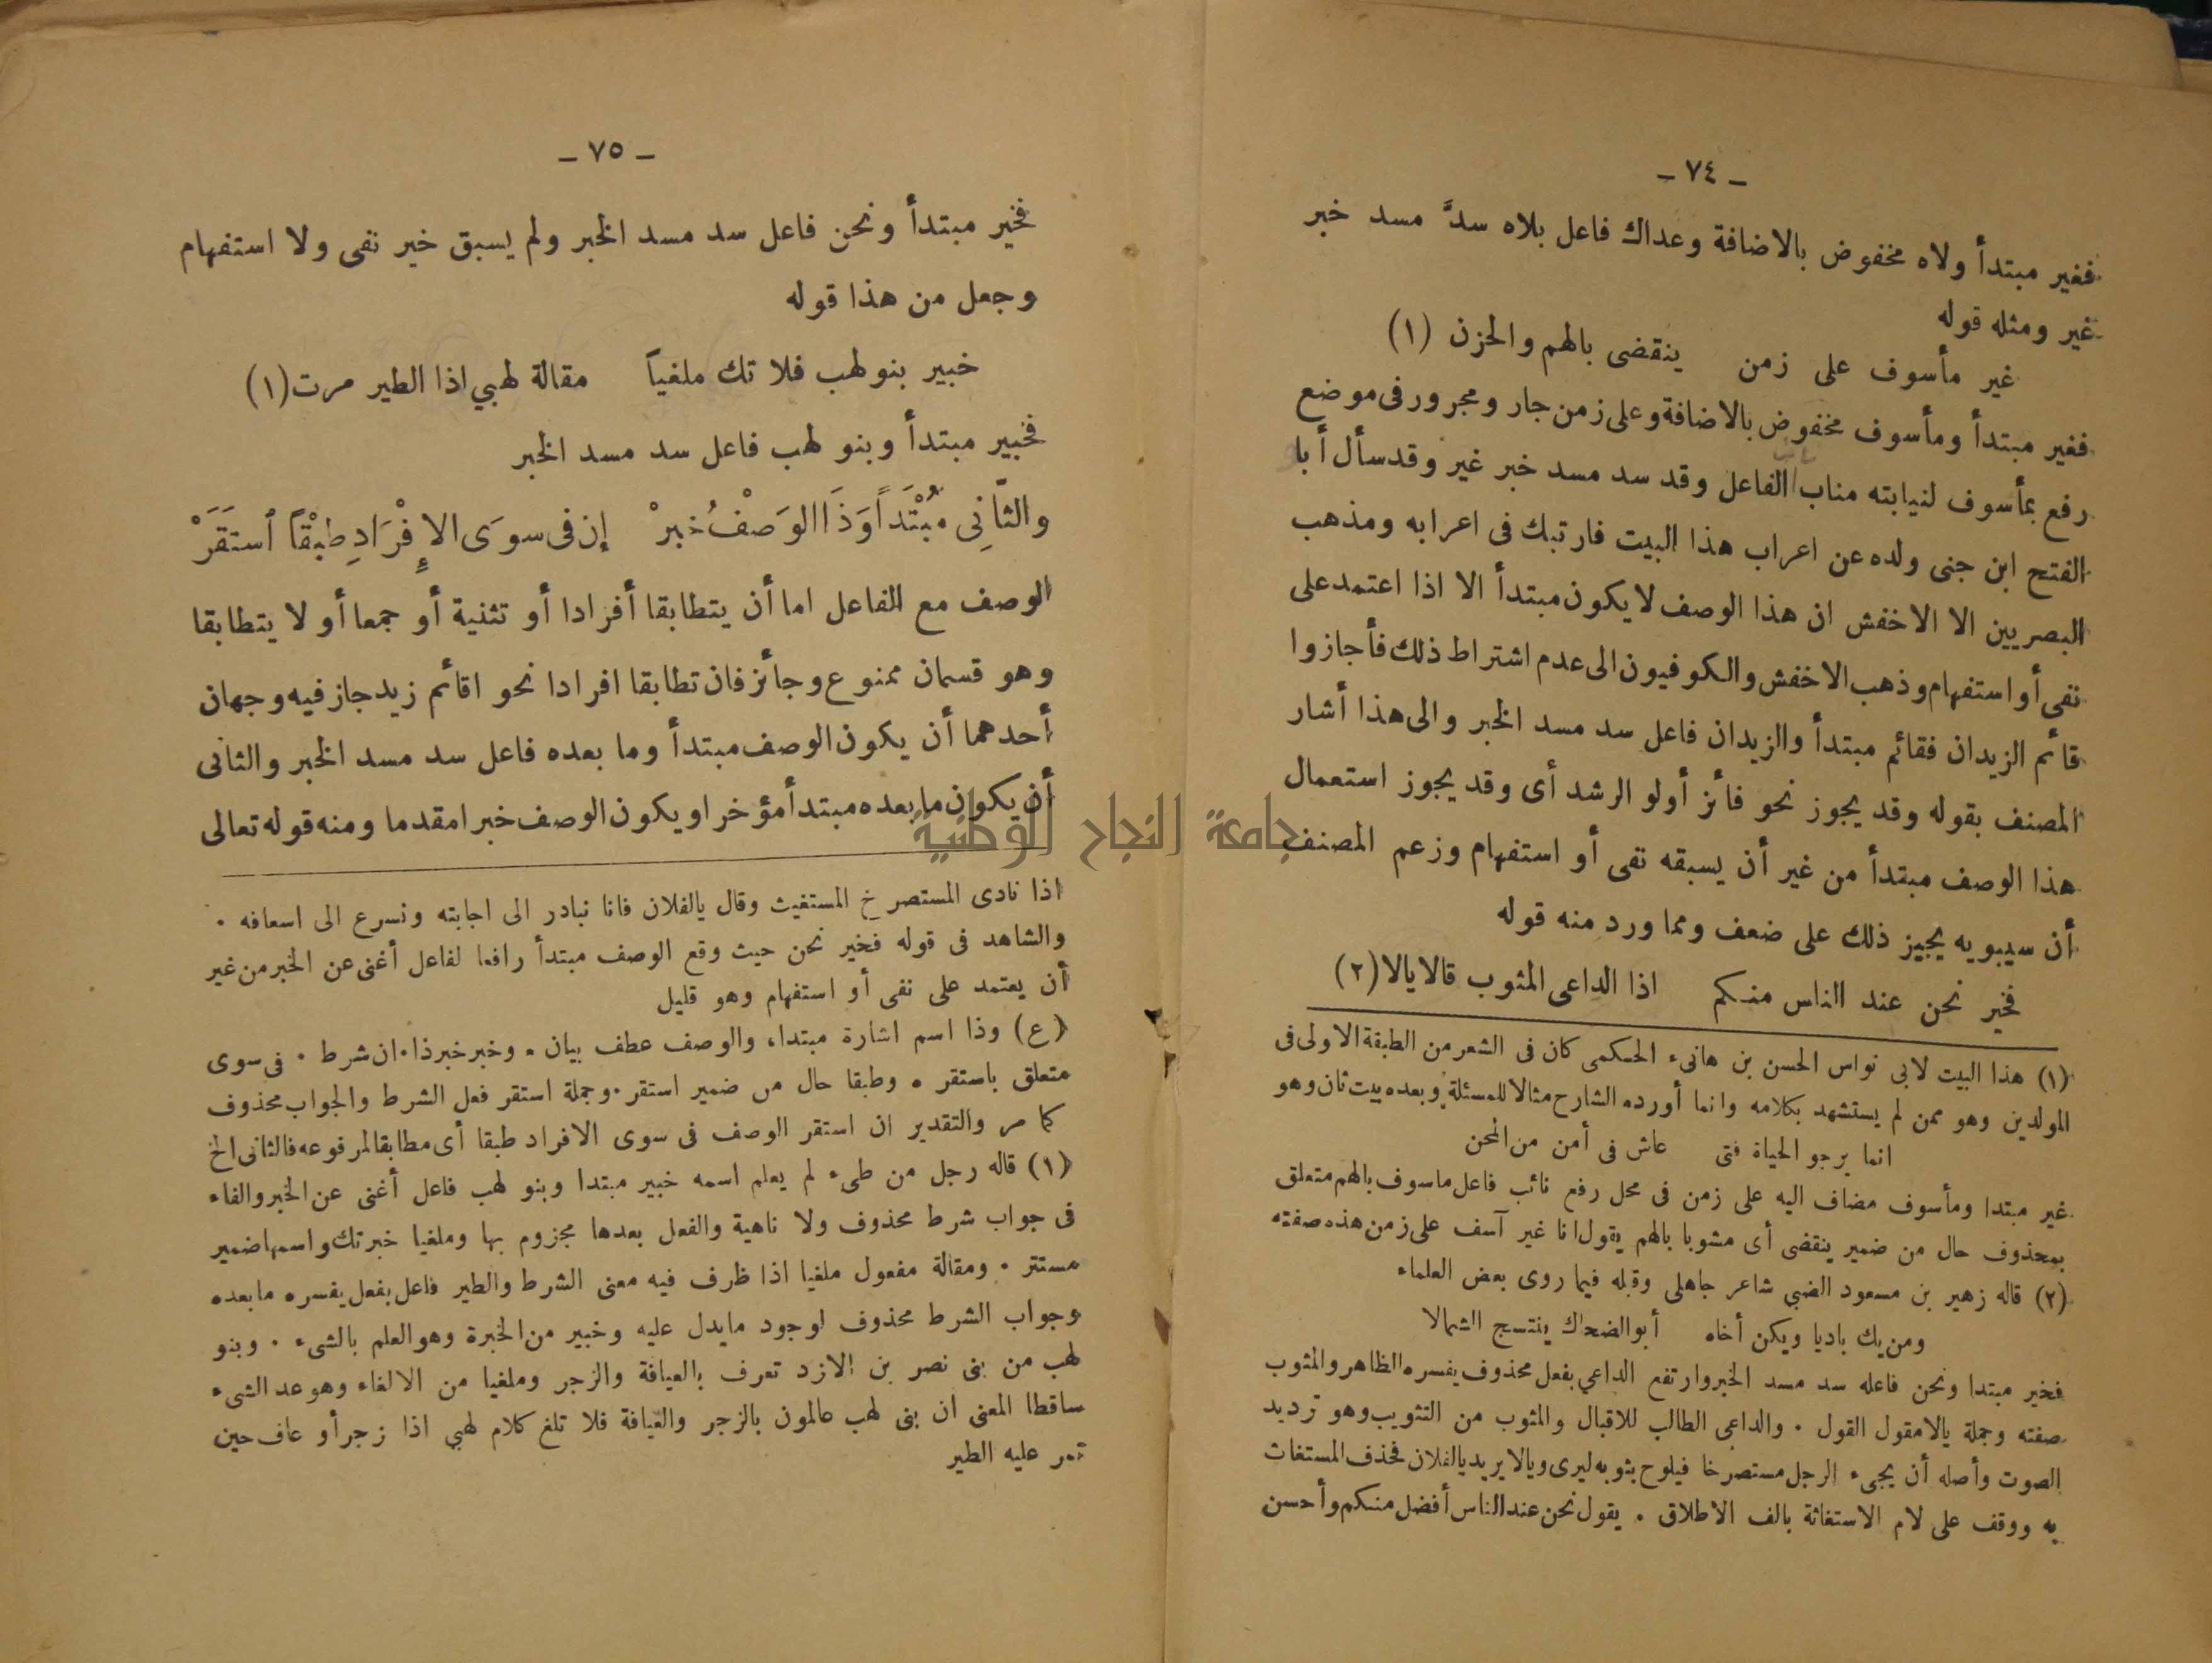 ـ ٧٤ ـ
فغير مبتدأ ولاه مخفوض بالاضافة وعداك فاعل بلاه سدَّ مسد خبر
غير ومثله قوله
غير مأسوف على زمن ينقضى بالهم والحزن (١)
فغير مبتدأ ومأسوف مخفوض بالاضافة وعلى زمن جار ومجرور فى موضع
رفع بمأسوف لنيابته مناب الفاعل وقد سد مسد خبر غير وقد سأل أبا
الفتح ابن جنى ولده عن اعراب هذا البيت فارتبك فى اعرابه ومذهب
البصريين الا الاخفش ان هذا الوصف لا يكون مبتدأ الا اذا اعتمد على
نفى أو استفهام وذهب الاخفش والكوفيون الى عدم اشتراط ذلك فأجازوا
قائم الزيدان فقائم مبتدأ والزيدان فاعل سد مسد الخبر والى هذا أشار
المصنف بقوله وقد يجوز نحو فائز أولو الرشد أى وقد يجوز استعمال
هذا الوصف مبتدأ من غير أن يسبقه نفى أو استفهام وزعم المصنف
أن سيبويه يجيز ذلك على ضعف ومما ورد منه قوله
فخير نحن عند الناس منكم اذا الداعى المثوب قال يالا (٢)
(١) هذا البيت لابى نواس الحسن بن هانىء الحكمى كان فى الشعر من الطبقة الاولى فى
المولدين وهو ممن لم يستشهد بكلامه وانما أورده الشارح مثالا للمسئلة وبعده بيت ثان وهو
انما يرجو الحياة فتى عاش فى أمن من المحن
غير مبتدا ومأسوف مضاف اليه على زمن فى محل رفع نائب فاعل ماسوف بالهم متعلق
بمحذوف حال من ضمير ينقضى أى مشوبا بالهم يقول انا غير آسف على زمن هذه صفته
(٢) قاله زهير بن مسعود الضبي شاعر جاهلى وقبله فيما روى بعض العلماء
ومن يك باديا ويكن أخاه أبو الضحاك ينتسج الشمالا
فخير مبتدا ونحن فاعله سد مسد الخبر وارتفع الداعي بفعل محذوف يفسره الظاهر والمثوب
صفته وجملة يالا مقول القول . والداعى الطالب للاقبال والمثوب من التثويب وهو ترديد
الصوت وأصله أن يجىء الرجل مستصرخا فيلوح بثوبه ليرى ويالا يريد يالفلان فحذف المستغاث
به ووقف على لام الاستغاثة بالف الاطلاق . يقول نحن عند الناس أفضل منكم وأحسن
ـ ٧٥ ـ
فخير مبتدأ ونحن فاعل سد مسد الخبر ولم يسبق خير نفى ولا استفهام
وجعل من هذا قوله
خبير بنو لهب فلا تك ملغياً مقالة لهبي اذا الطير مرت (١)
فخبير مبتدأ وبنو لهب فاعل سد مسد الخبر
والثّانِى مُبْتَدَاً وَذَا الوَصْفُ خبرْ إن فى سوَى الإِفْرَادِ طبْقاً ٱستَقَرَّْ
الوصف مع الفاعل اما أن يتطابقا أفرادا أو تثنية أو جمعا أو لا يتطابقا
وهو قسمان ممنوع وجائز فان تطابقا افرادا نحو اقائم زيد جاز فيه وجهان
أحدهما أن يكون الوصف مبتدأ وما بعده فاعل سد مسد الخبر والثانى
أن يكون ما بعده مبتدأ مؤخرا ويكون الوصف خبرا مقدما ومنه قوله تعالى
اذا نادى المستصرخ المستغيث وقال يالفلان فانا نبادر الى اجابته ونسرع الى اسعافه .
والشاهد فى قوله فخير نحن حيث وقع الوصف مبتدأ رافعا لفاعل أغنى عن الخبر من غير
أن يعتمد على نفى أو استفهام وهو قليل
(ع) وذا اسم اشارة مبتداء والوصف عطف بيان . وخبر خبر ذا . ان شرط . فى سوى
متعلق باستقر . وطبقا حال من ضمير استقر . وجملة استقر فعل الشرط والجواب محذوف
كما مر والتقدير ان استقر الوصف فى سوى الافراد طبقا أى مطابقا لمرفوعه فالثانى الخ
(١) قاله رجل من طىء لم يعلم اسمه خبير مبتدا وبنو لهب فاعل أغنى عن الخبر والفاء
فى جواب شرط محذوف ولا ناهية والفعل بعدها مجزوم بها وملغيا خبر تك واسمها ضمير
مستتر . ومقالة مفعول ملغيا اذا ظرف فيه معنى الشرط والطير فاعل بفعل يفسره ما بعده
وجواب الشرط محذوف لوجود مايدل عليه وخبير من الخبرة وهو العلم بالشىء . وبنو
لهب من بنى نصر بن الازد تعرف بالعيافة والزجر وملغيا من الالغاء وهو عد الشىء
ساقطا المعنى ان بنى لهب عالمون بالزجر والعيافة فلا تلغ كلام لهبي اذا زجر أو عاف حين
تمر عليه الطير
جامعة النجاح الوطنية